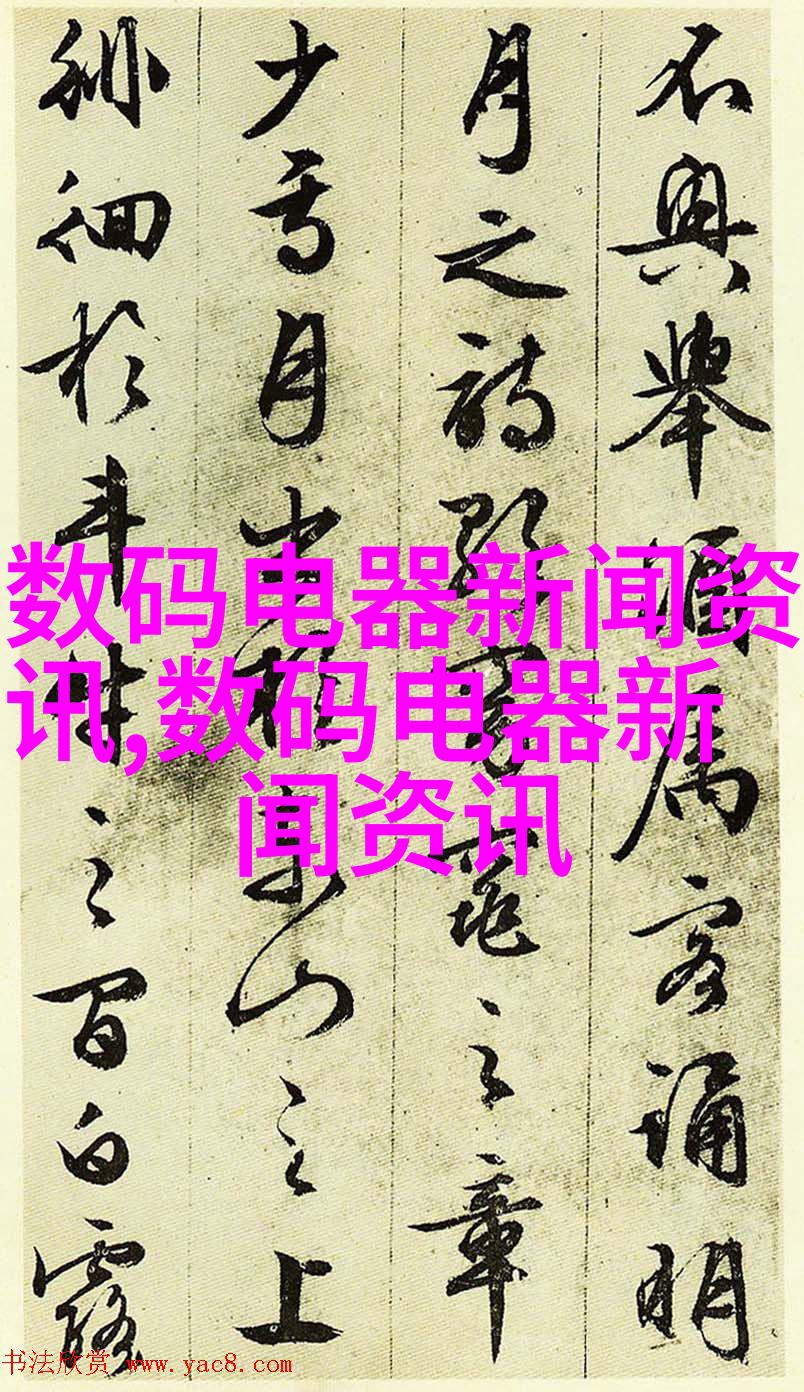 不興舉酒属客誦明
月之詩歌窈窕之章
少焉月出於東山之上
徘徊於斗牛之間白露
数码电器新闻资
讯,数码电器新
闻资讯
书法欣赏 www.yac8.com